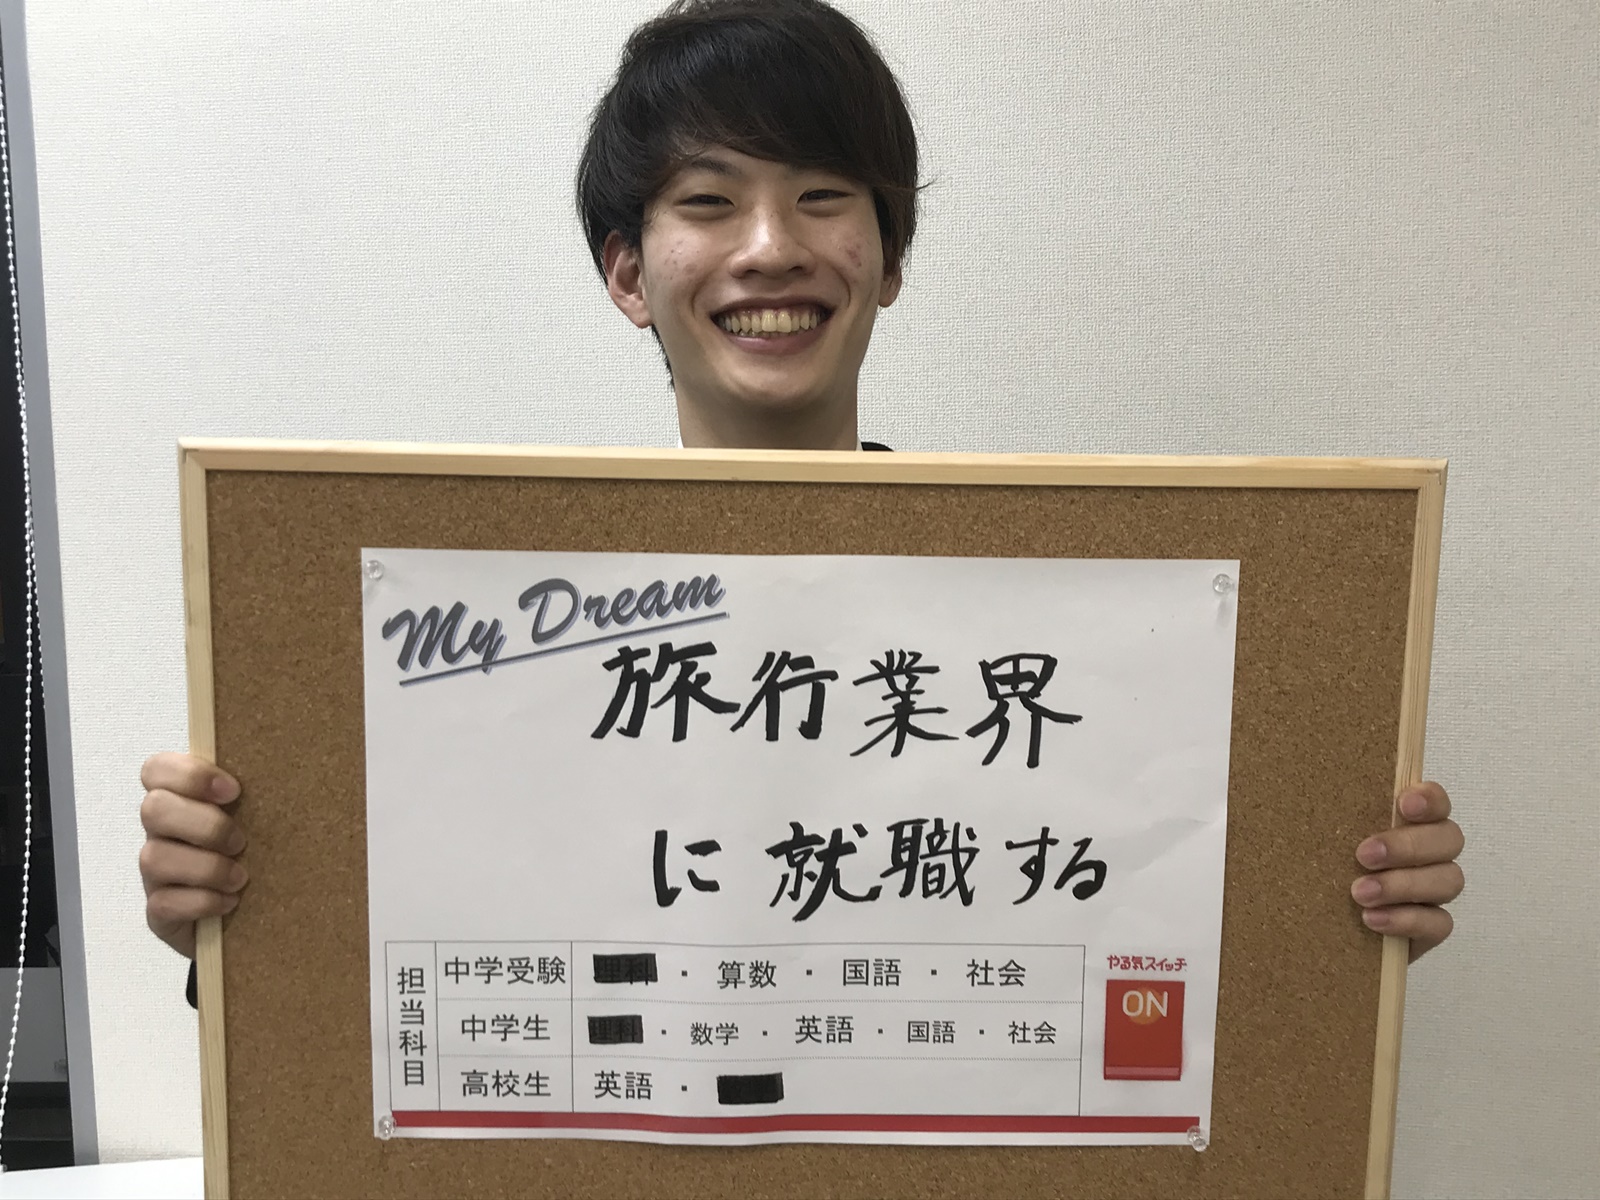 My Dream
旅行業界
に就職する
担当科目
中学受験 理科・算数・国語・社会
中学生 理科・数学・英語・国語・社会
高校生 英語・
やる気スイッチ
ON